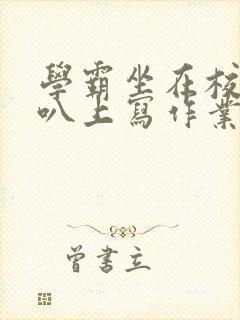 學霸坐在校
叭上寫作業
曾書立